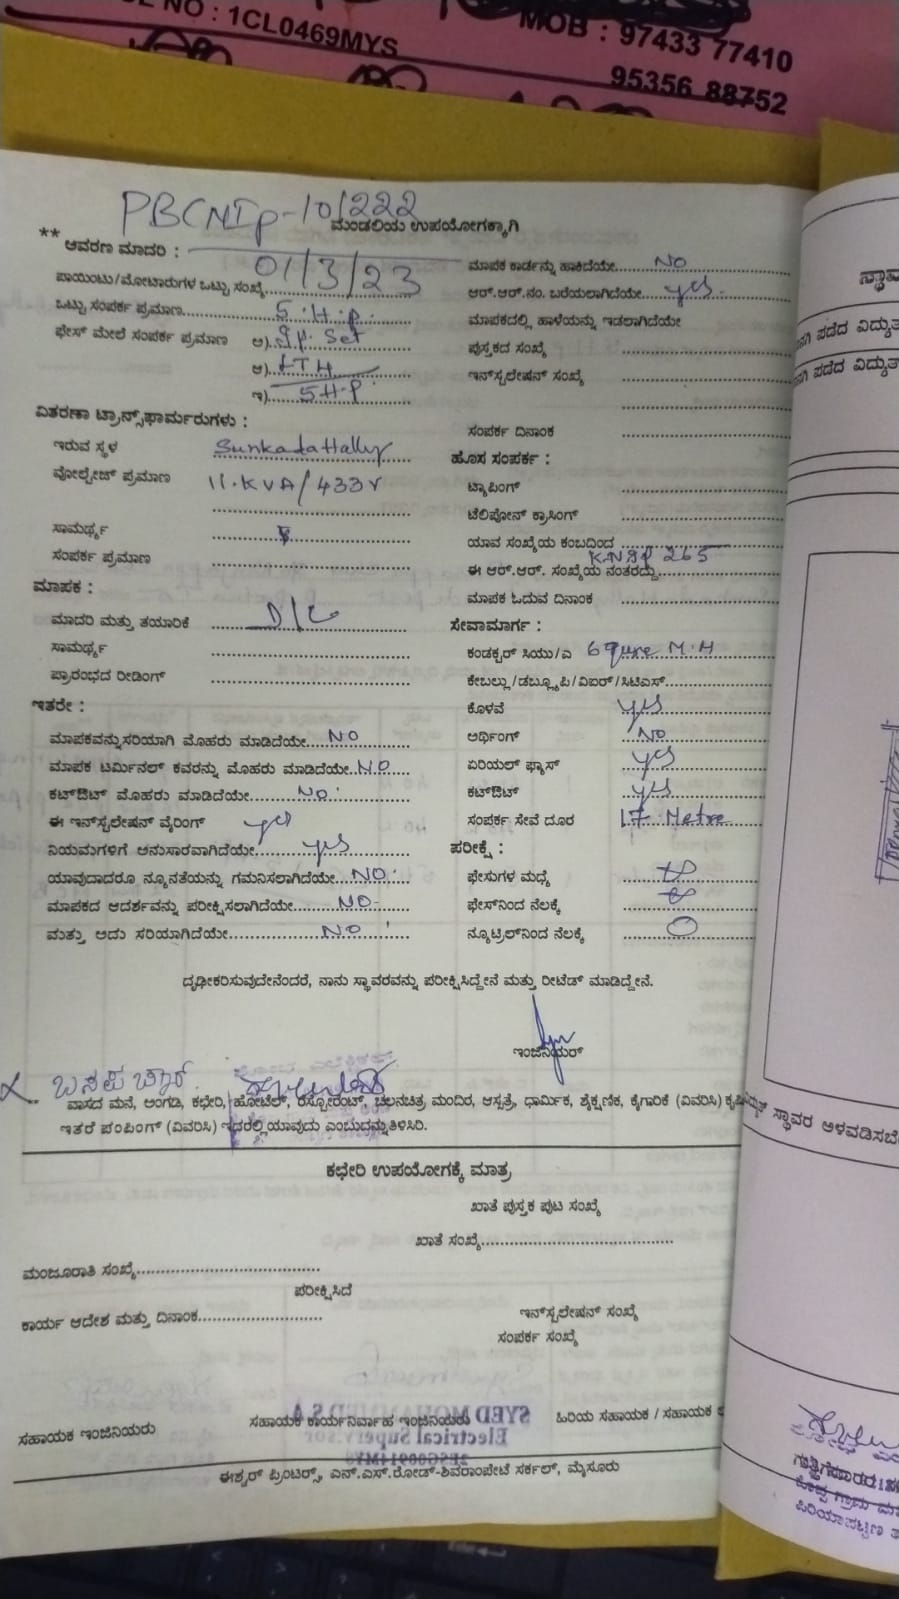 NO : 1CL0469MYS
MOB : 97433 77410
95356 88752
PBCNIp-10/222
ಮಂಡಲಿಯ ಉಪಯೋಗಕ್ಕಾಗಿ
** ಆವರಣ ಮಾದರಿ :
ಪಾಯಿಂಟು/ಮೋಟಾರುಗಳ ಒಟ್ಟು ಸಂಖ್ಯೆ 01/3/23
ಒಟ್ಟು ಸಂಪರ್ಕ ಪ್ರಮಾಣ 5.H.P.
ಫೇಸ್ ಮೇಲೆ ಸಂಪರ್ಕ ಪ್ರಮಾಣ ಅ) Ip. Set
ಆ)
ಇ) 5H.P.
ವಿತರಣಾ ಟ್ರಾನ್ಸ್‌ಫಾರ್ಮರುಗಳು :
ಇರುವ ಸ್ಥಳ Sunkadathally
ವೋಲ್ಟೇಜ್ ಪ್ರಮಾಣ 11.KVA/433V
ಸಾಮರ್ಥ್ಯ
ಸಂಪರ್ಕ ಪ್ರಮಾಣ
ಮಾಪಕ :
ಮಾದರಿ ಮತ್ತು ತಯಾರಿಕೆ D/C
ಸಾಮರ್ಥ್ಯ
ಪ್ರಾರಂಭದ ರೀಡಿಂಗ್
ಇತರೇ :
ಮಾಪಕವನ್ನು ಸರಿಯಾಗಿ ಮೊಹರು ಮಾಡಿದೆಯೇ... NO
ಮಾಪಕ ಟರ್ಮಿನಲ್ ಕವರನ್ನು ಮೊಹರು ಮಾಡಿದೆಯೇ. NO
ಕಟ್‌ಔಟ್ ಮೊಹರು ಮಾಡಿದೆಯೇ... NO
ಈ ಇನ್‌ಸ್ಟಲೇಷನ್ ವೈರಿಂಗ್ yes
ನಿಯಮಗಳಿಗೆ ಅನುಸಾರವಾಗಿದೆಯೇ... yes
ಯಾವುದಾದರೂ ನ್ಯೂನತೆಯನ್ನು ಗಮನಿಸಲಾಗಿದೆಯೇ... NO
ಮಾಪಕದ ಆದರ್ಶವನ್ನು ಪರೀಕ್ಷಿಸಲಾಗಿದೆಯೇ... NO
ಮತ್ತು ಅದು ಸರಿಯಾಗಿದೆಯೇ... NO
ಮಾಪಕ ಕಾರ್ಡನ್ನು ಹಾಕಿದೆಯೇ... NO
ಆರ್.ಆರ್.ನಂ. ಬರೆಯಲಾಗಿದೆಯೇ... yes.
ಮಾಪಕದಲ್ಲಿ ಹಾಳೆಯನ್ನು ಇಡಲಾಗಿದೆಯೇ
ಪುಸ್ತಕದ ಸಂಖ್ಯೆ
ಇನ್‌ಸ್ಟಲೇಷನ್ ಸಂಖ್ಯೆ
ಸಂಪರ್ಕ ದಿನಾಂಕ
ಹೊಸ ಸಂಪರ್ಕ :
ಟ್ಯಾಪಿಂಗ್
ಟೆಲಿಪೋನ್ ಕ್ರಾಸಿಂಗ್
ಯಾವ ಸಂಖ್ಯೆಯ ಕಂಬದಿಂದ
ಈ ಆರ್.ಆರ್. ಸಂಖ್ಯೆಯ ನಂತರದ್ದು 265
ಮಾಪಕ ಓದುವ ದಿನಾಂಕ
ಸೇವಾಮಾರ್ಗ :
ಕಂಡಕ್ಟರ್ ಸಿಯು/ಎ 6 M.H
ಕೇಬಲ್ಲು/ಡಬ್ಲ್ಯೂಪಿ/ವಿಐರ್/ಸಿಟಿಎಸ್
ಕೊಳವೆ yes
ಅರ್ಥಿಂಗ್ NO
ಏರಿಯಲ್ ಫ್ಯೂಸ್ yes
ಕಟ್‌ಔಟ್ yes
ಸಂಪರ್ಕ ಸೇವೆ ದೂರ 17 Metre
ಪರೀಕ್ಷೆ :
ಫೇಸುಗಳ ಮಧ್ಯೆ
ಫೇಸ್‌ನಿಂದ ನೆಲಕ್ಕೆ
ನ್ಯೂಟ್ರಲ್‌ನಿಂದ ನೆಲಕ್ಕೆ O
ದೃಢೀಕರಿಸುವುದೇನೆಂದರೆ, ನಾನು ಸ್ಥಾವರವನ್ನು ಪರೀಕ್ಷಿಸಿದ್ದೇನೆ ಮತ್ತು ರೀಟೆಡ್ ಮಾಡಿದ್ದೇನೆ.
ಇಂಜಿನಿಯರ್
ವಾಸದ ಮನೆ, ಅಂಗಡಿ, ಕಛೇರಿ, ಹೋಟೆಲ್, ರೆಸ್ಟೋರೆಂಟ್, ಚಲನಚಿತ್ರ ಮಂದಿರ, ಆಸ್ಪತ್ರೆ, ಧಾರ್ಮಿಕ, ಶೈಕ್ಷಣಿಕ, ಕೈಗಾರಿಕೆ (ವಿವರಿಸಿ)
ಇತರೆ ಪಂಪಿಂಗ್ (ವಿವರಿಸಿ) ಇದರಲ್ಲಿ ಯಾವುದು ಎಂಬುದನ್ನು ತಿಳಿಸಿರಿ.
ಕಛೇರಿ ಉಪಯೋಗಕ್ಕೆ ಮಾತ್ರ
ಖಾತೆ ಪುಸ್ತಕ ಪುಟ ಸಂಖ್ಯೆ
ಖಾತೆ ಸಂಖ್ಯೆ
ಮಂಜೂರಾತಿ ಸಂಖ್ಯೆ
ಪರೀಕ್ಷಿಸಿದೆ
ಕಾರ್ಯ ಆದೇಶ ಮತ್ತು ದಿನಾಂಕ
ಇನ್‌ಸ್ಟಲೇಷನ್ ಸಂಖ್ಯೆ
ಸಂಪರ್ಕ ಸಂಖ್ಯೆ
ಸಹಾಯಕ ಇಂಜಿನಿಯರು
ಸಹಾಯಕ ಕಾರ್ಯನಿರ್ವಾಹ ಇಂಜಿನಿಯರು
ಹಿರಿಯ ಸಹಾಯಕ / ಸಹಾಯಕ
ಈಶ್ವರ್ ಪ್ರಿಂಟರ್ಸ್, ಎನ್.ಎಸ್.ರೋಡ್-ಶಿವರಾಂಪೇಟೆ ಸರ್ಕಲ್, ಮೈಸೂರು
ಪಡೆದ ವಿದ್ಯುತ್
ಪಡೆದ ವಿದ್ಯುತ್
ಸ್ಥಾವರ ಅಳವಡಿಸಬೆ